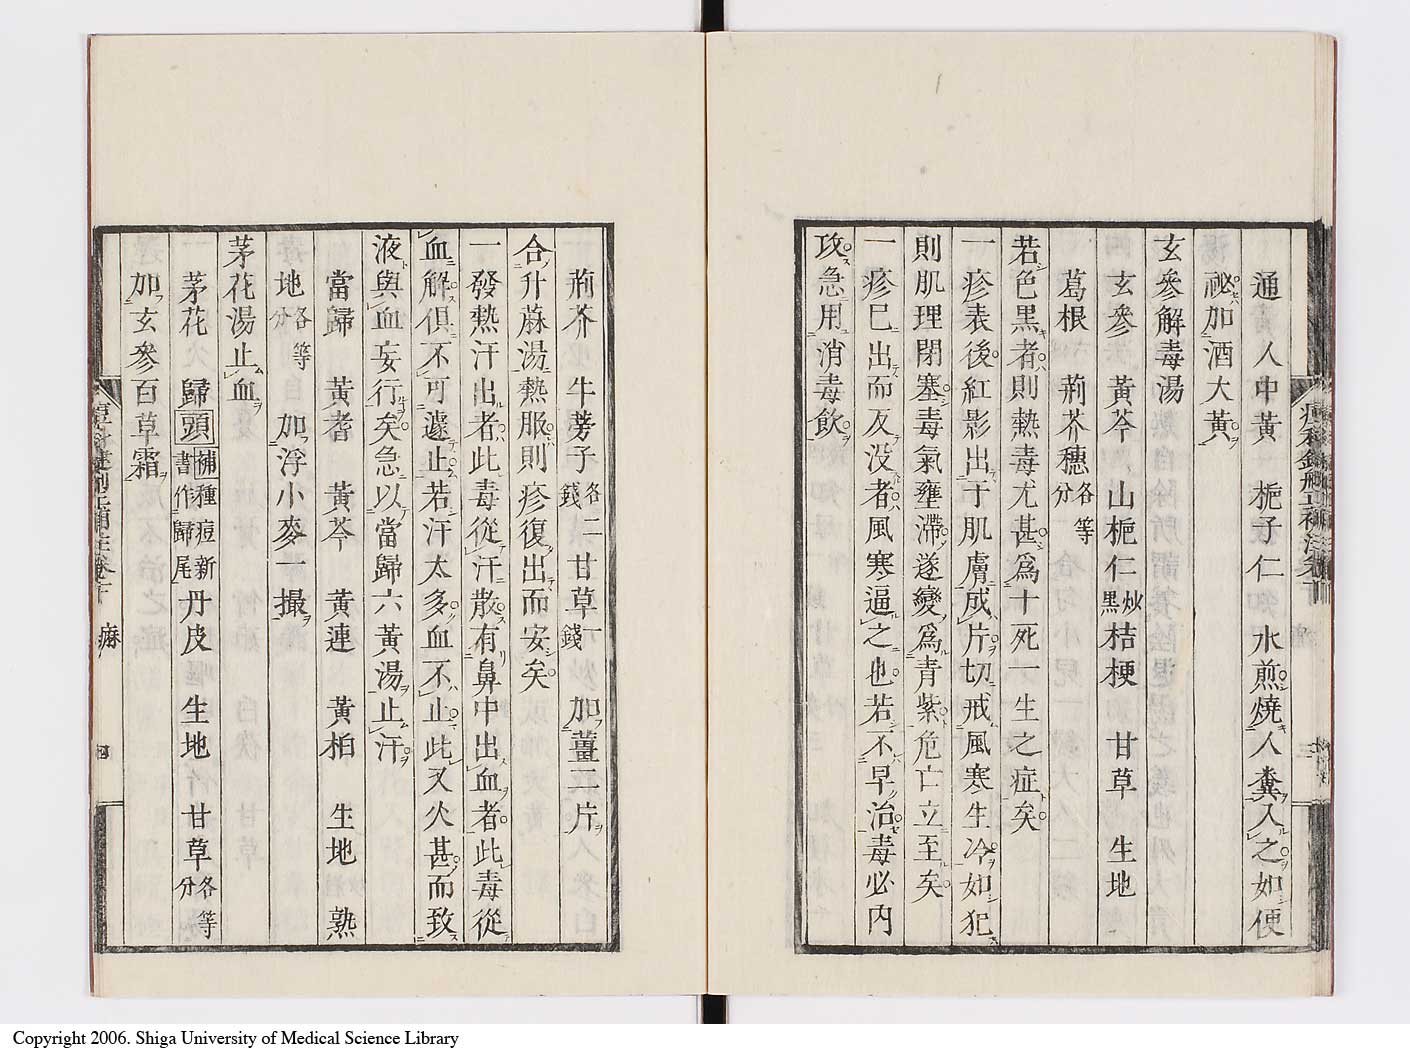 通人中黃　梔子仁　水煎燒人糞入之如便
祕加酒大黃
玄參解毒湯
玄參　黃芩　山梔仁炒黑　桔梗　甘草　生地
葛根　荊芥穗各等分
若色黑者則熱毒尤甚爲十死一生之症矣
一疹表後紅影出于肌膚成片切戒風寒生冷如犯
則肌理閉塞毒氣壅滯遂變爲青紫危亡立至矣
一疹已出而反没者風寒逼之也若不早治毒必内
攻急用消毒飲
荊芥　牛蒡子各二錢　甘草一錢　加薑三片
合升蔴湯熱服則疹復出而安矣
一發熱汗出者此毒從汗散有鼻中出血者此毒從
血解俱不可遽止若汗太多血不止此又火甚而致
液與血妄行矣急以當歸六黃湯止汗
當歸　黃耆　黃芩　黃連　黃柏　生地　熟
地各等分　加浮小麥一撮
茅花湯止血
茅花　歸頭　補種痘新書作歸尾　丹皮　生地　甘草各等分
加玄參百草霜
痳
四
Copyright 2006. Shiga University of Medical Science Library